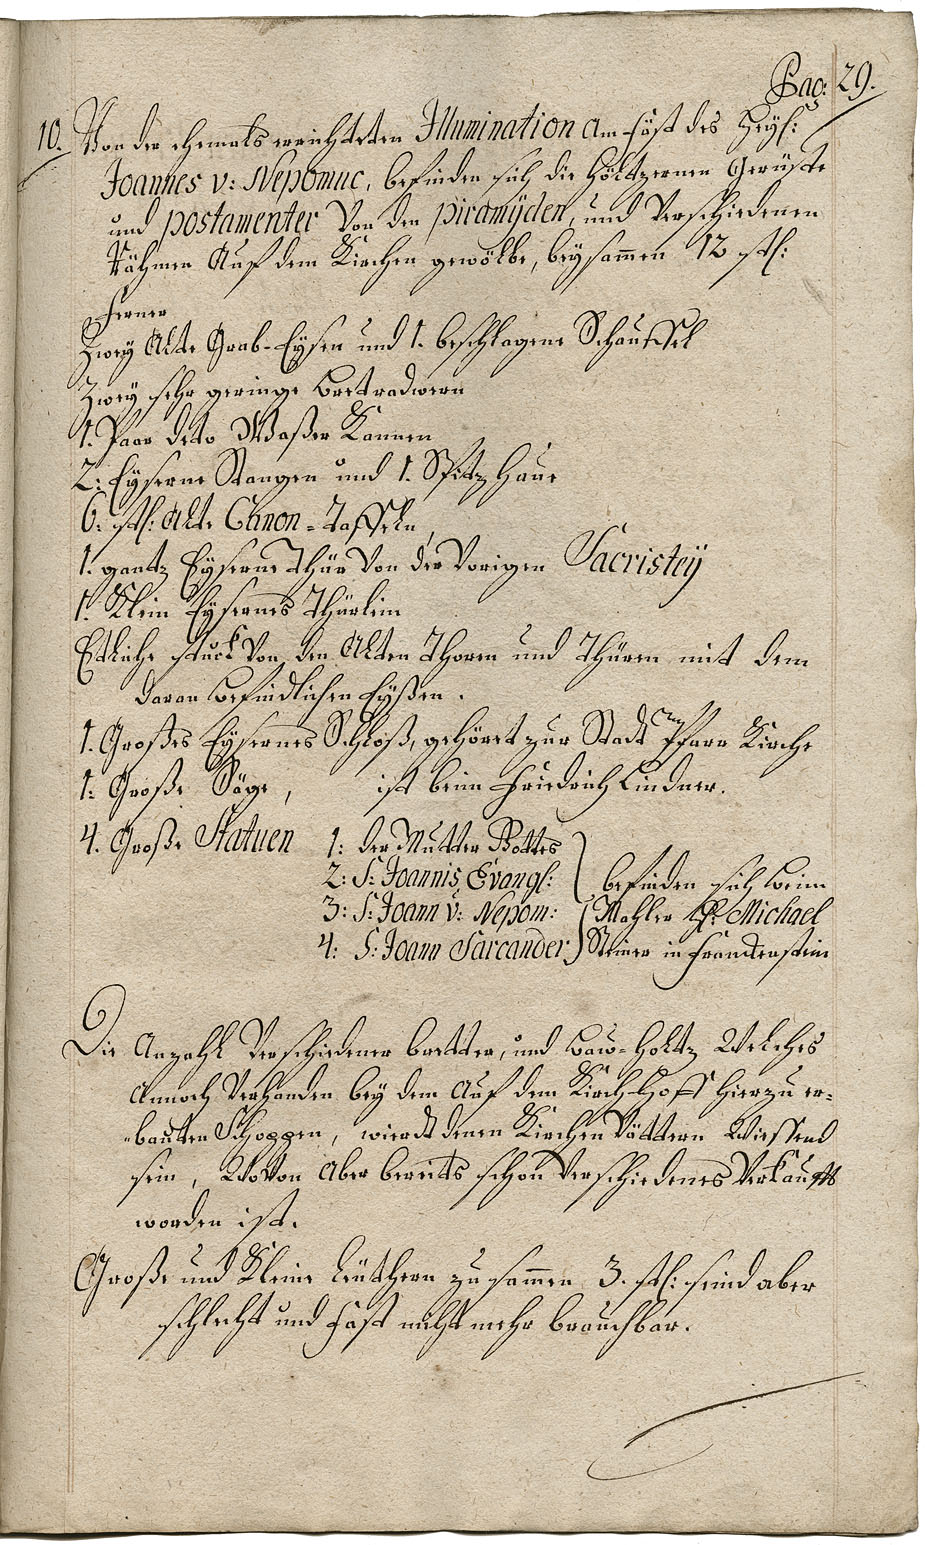 Pag: 29.
10. Von der ehemals errichteten Illumination am Fäst des Heyl:
Joannes v: Nepomuc, befinden sich die höltzernen Gerüste
und postamenter von den piramijden, und verschiedenen
Rähmen auf dem Kirchen gewölbe, beysammen 12 stk:
Ferner
Zwey alte Grab-Eysen und 1. beschlagene Schauffel
Zwey sehr geringe bretradwern
1. Paar deto Waßer Kannen
2: Eyserne Stangen und 1. Spitz haue
6: stk: alte Canon-Taffeln,
1. gantz Eyserne Thür von der vorigen Sacristeÿ
1. Klein Eysernes Thürlein
Etliche stuck von den alten Thoren und Thüren mit dem
daran befindlichen Eyßen.
1. Großes Eysernes Schloß, gehöret zur Stadt Pfarr Kirche
1: Große Säge, ist beim Friedrich Lindner.
4. Große Statuen 1: der Mutter Gottes
2: S: Joannis Evangl: befinden sich beim
3: S: Joann v: Nepom: Mahler H: Michael
4: S: Joann Sarcander Steiner in Franckenstein
Die Anzahl verschiedener bretter, und Bau-holtz welches
annoch verhanden bey dem auf dem Kirch-Hoff hierzu er=
=bauten Schoppen, wierdt denen Kirchen Vättern wissend
sein, wovon aber bereits schon verschiedenes verkaufft
worden ist.
Große und Kleine Leuthern zusammen 3. stk: seind aber
schlecht und fast nicht mehr brauchbar.